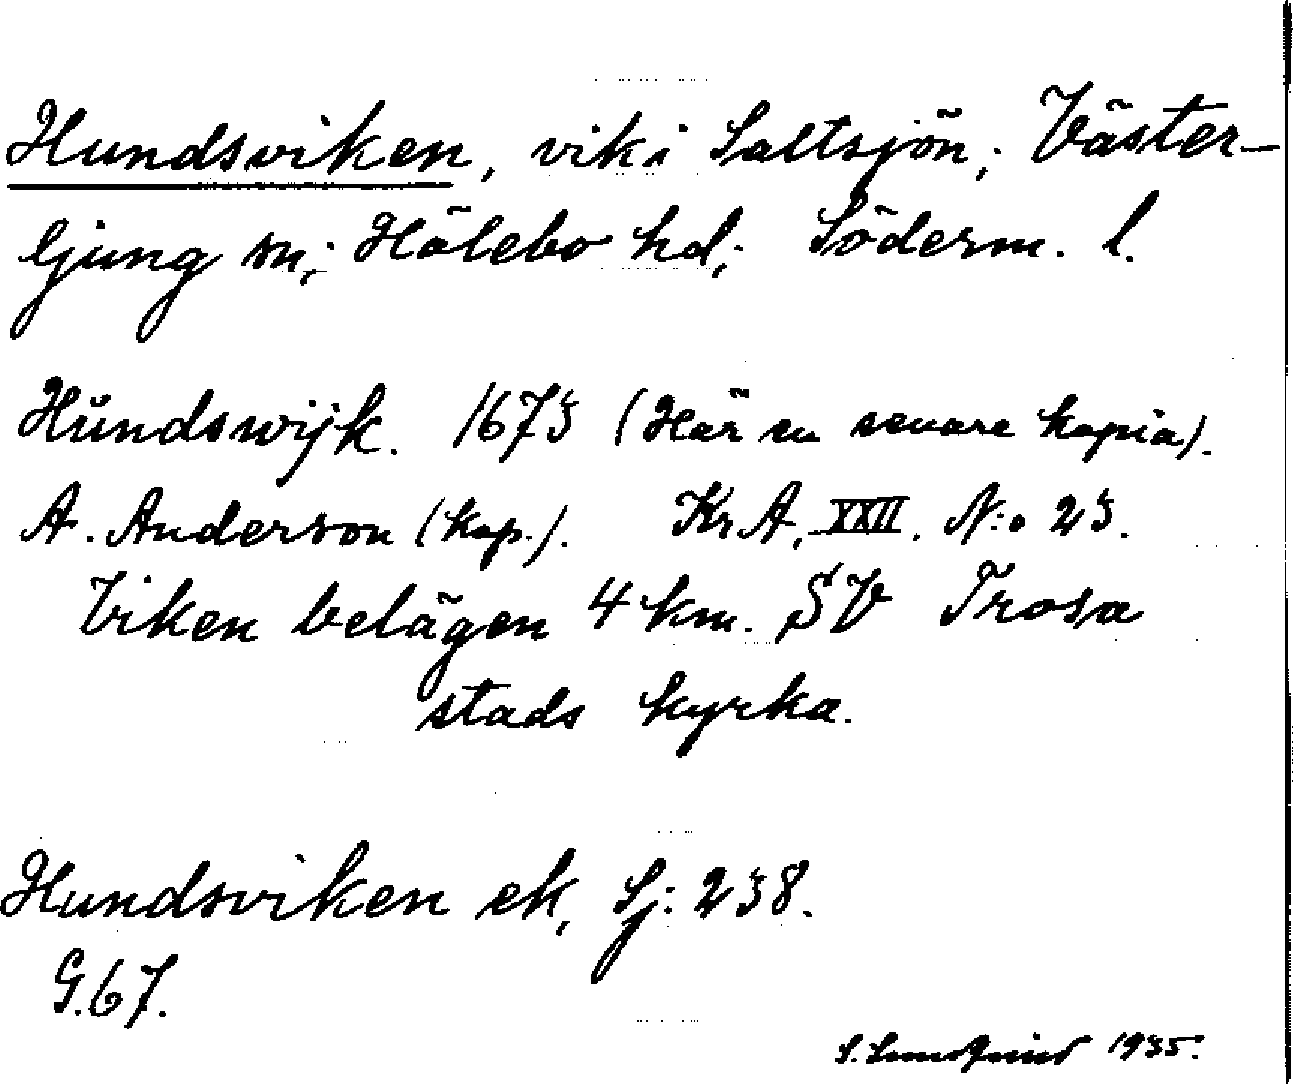 Hundsviken, vik i Saltsjön; Väster-
ljung sn; Hölebo hd; Söderm. l.
Hŭndswijk. 1673 (Här en senare kopia).
A. Anderson (kop.). Kr.A. XXII. N:o 23.
Viken belägen 4 km. SV Trosa
stads kyrka.
Hundsviken ek, Sj: 238.
G.67.
S. 1935.